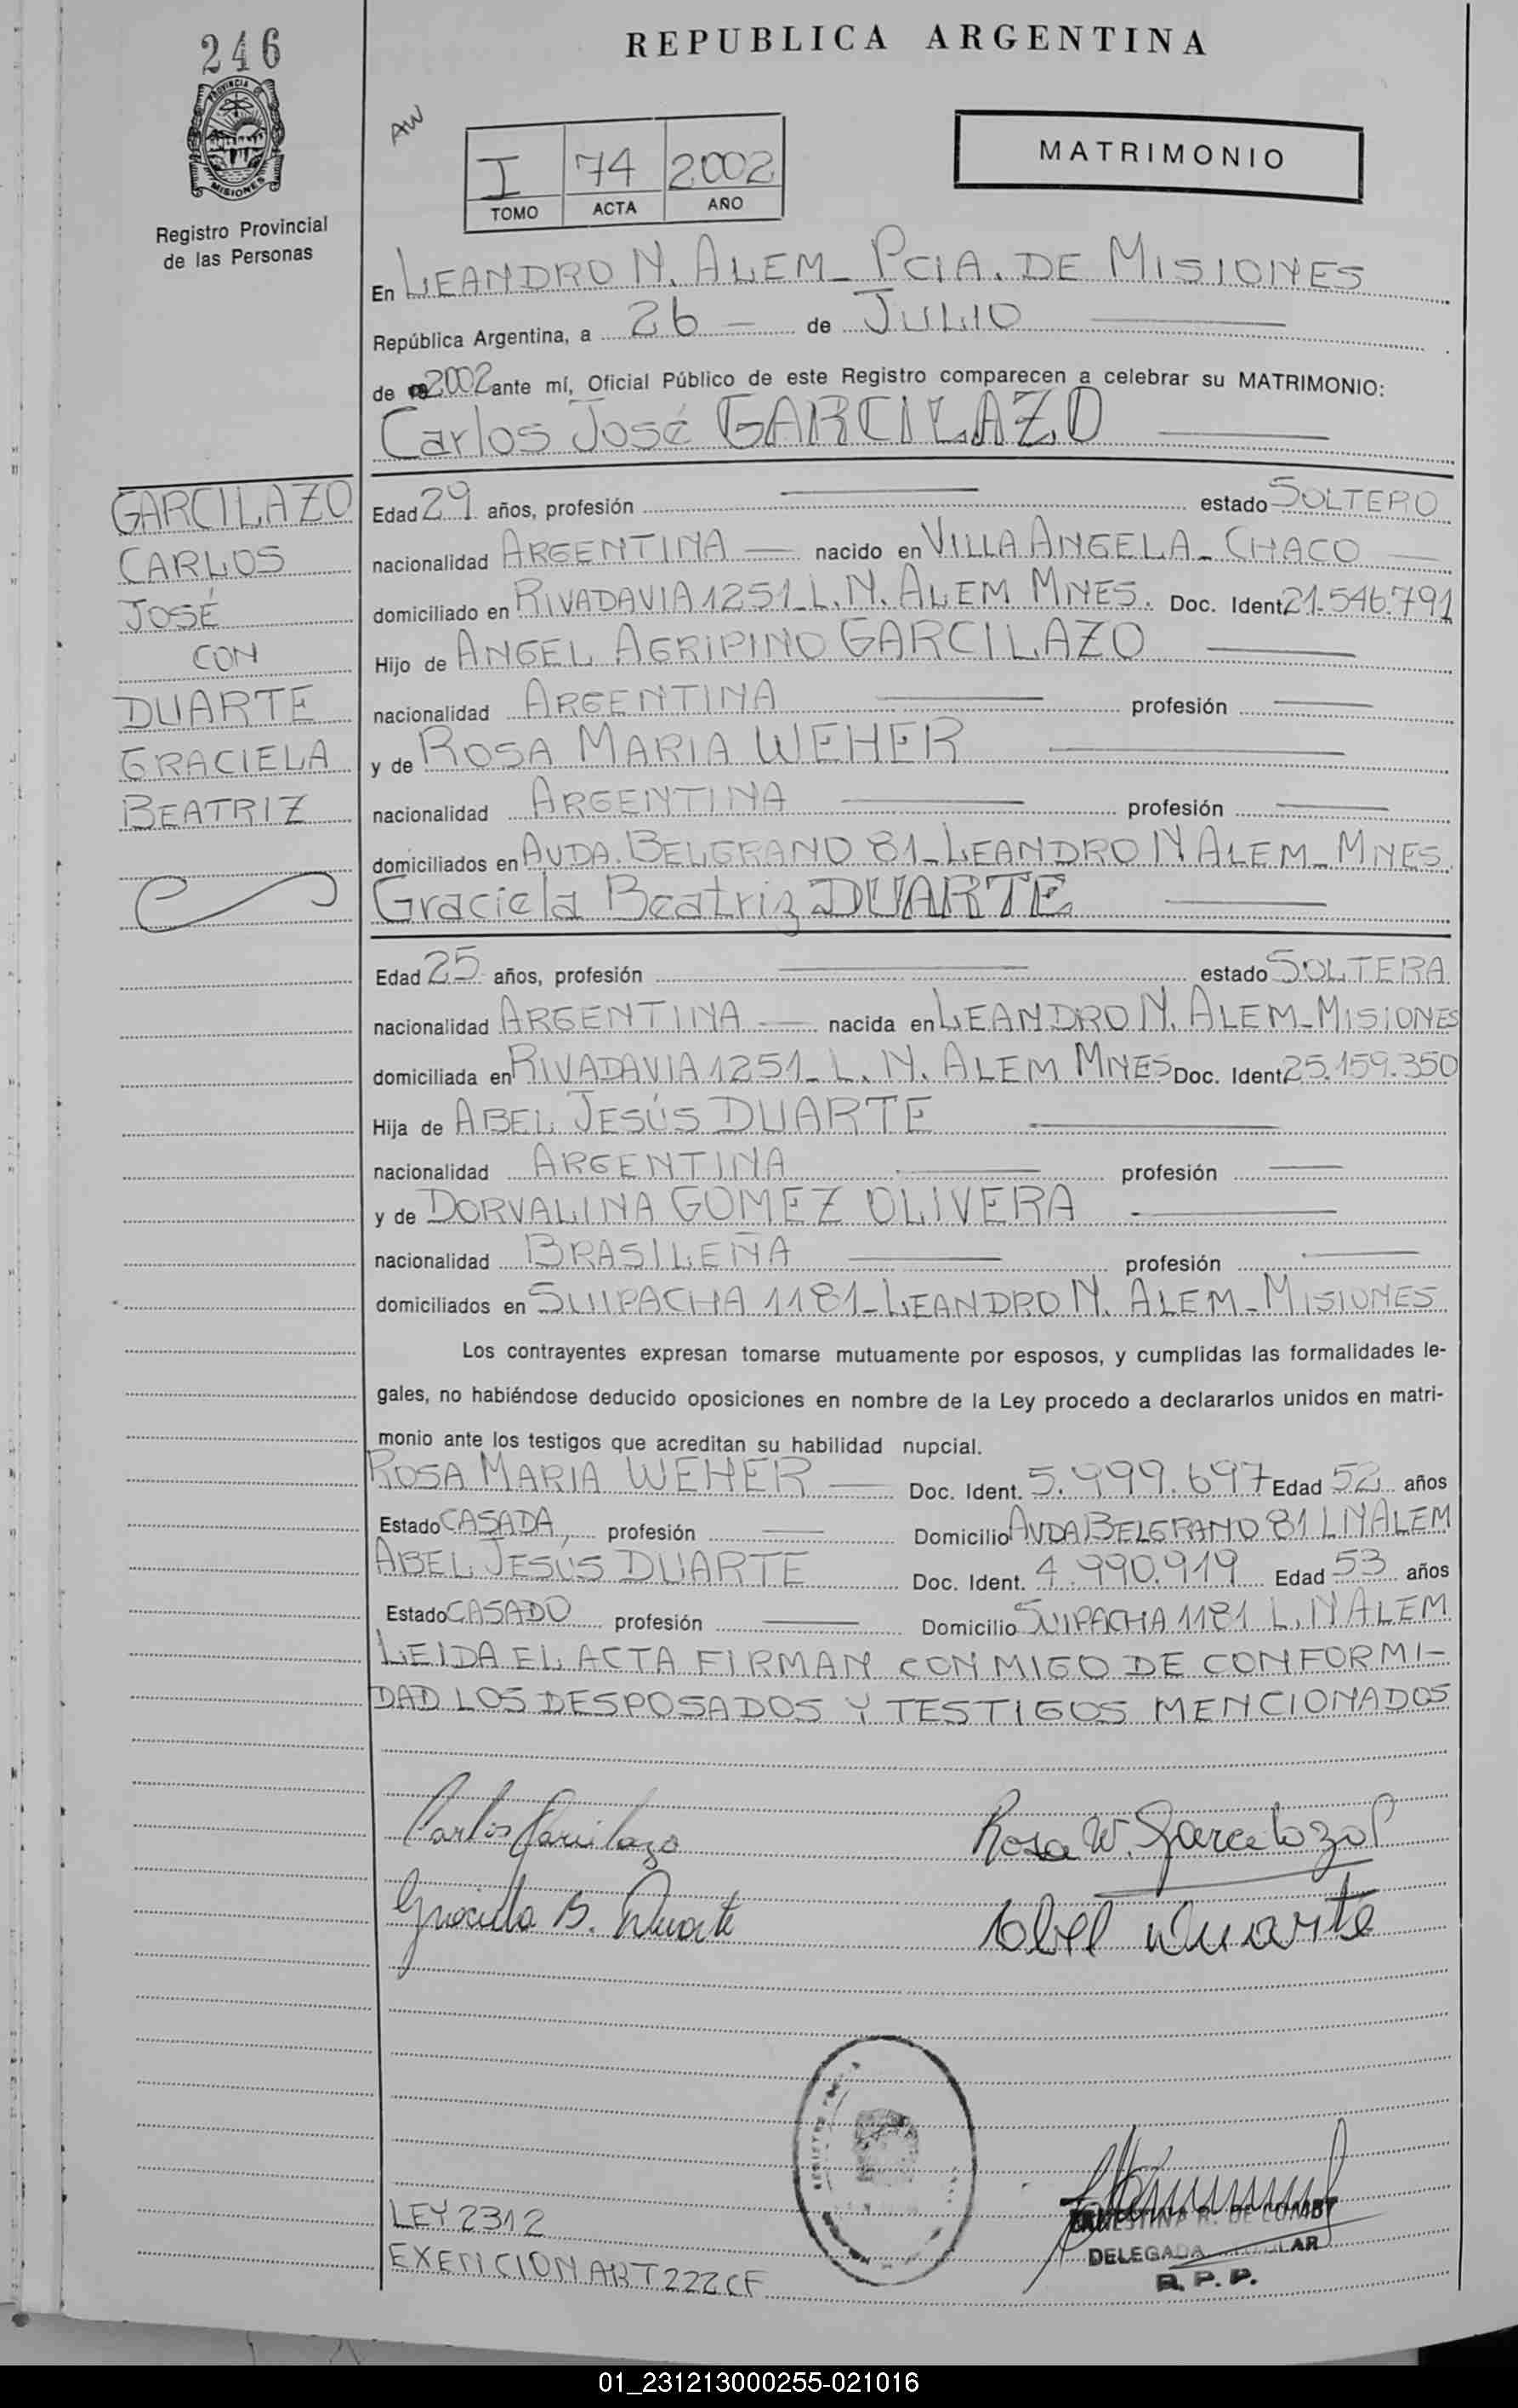 246
REPUBLICA ARGENTINA
PROVINCIA DE
MISIONES
AW
I 74 2002
TOMO ACTA AÑO
MATRIMONIO
Registro Provincial
de las Personas
En LEANDRO N. ALEM - PCIA. DE MISIONES
República Argentina, a 26 - de JULIO
de 2002 ante mí, Oficial Público de este Registro comparecen a celebrar su MATRIMONIO:
Carlos José GARCILAZO
GARCILAZO
CARLOS
JOSÉ
CON
DUARTE
GRACIELA
BEATRIZ
Edad 29 años, profesión estado SOLTERO
nacionalidad ARGENTINA nacido en VILLA ANGELA - CHACO
domiciliado en RIVADAVIA 1251 - L. N. ALEM MNES. Doc. Ident. 21.546.791
Hijo de ANGEL AGRIPINO GARCILAZO
nacionalidad ARGENTINA profesión
y de ROSA MARIA WEHER
nacionalidad ARGENTINA profesión
domiciliados en AVDA. BELGRANO 81 - LEANDRO N ALEM - MNES
Graciela Beatriz DUARTE
Edad 25 años, profesión estado SOLTERA
nacionalidad ARGENTINA nacida en LEANDRO N. ALEM - MISIONES
domiciliada en RIVADAVIA 1251 - L. N. ALEM MNES Doc. Ident. 25.159.350
Hija de ABEL JESÚS DUARTE
nacionalidad ARGENTINA profesión
y de DORVALINA GOMEZ OLIVERA
nacionalidad BRASILEÑA profesión
domiciliados en SUIPACHA 1181 - LEANDRO N. ALEM - MISIONES
Los contrayentes expresan tomarse mutuamente por esposos, y cumplidas las formalidades le-
gales, no habiéndose deducido oposiciones en nombre de la Ley procedo a declararlos unidos en matri-
monio ante los testigos que acreditan su habilidad nupcial.
ROSA MARIA WEHER Doc. Ident. 5.999.697 Edad 52 años
Estado CASADA, profesión Domicilio AVDA BELGRANO 81 L N ALEM
ABEL JESÚS DUARTE Doc. Ident. 4.990.919 Edad 53 años
Estado CASADO profesión Domicilio SUIPACHA 1181 L. N ALEM
LEIDA EL ACTA FIRMAN CONMIGO DE CONFORMI-
DAD LOS DESPOSADOS Y TESTIGOS MENCIONADOS
Carlos Garcilazo
Rosa W. Garcilazo
Graciela B. Duarte
Abel Duarte
ERNESTINA R. DE
DELEGADA TITULAR
R. P. P.
LEY 2312
EXENCION ART 222 CF
01_231213000255-021016